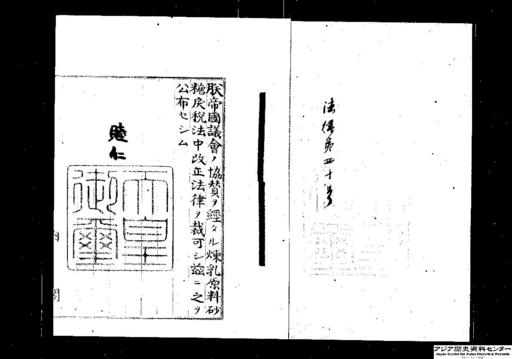 法律第四十号
朕帝國議會ノ協賛ヲ經タル煉乳原料砂
糖戻税法中改正法律ヲ裁可シ茲ニ之ヲ
公布セシム
睦仁
天皇
御璽
内閣
アジア歴史資料センター
Japan Center for Asian Historical Records